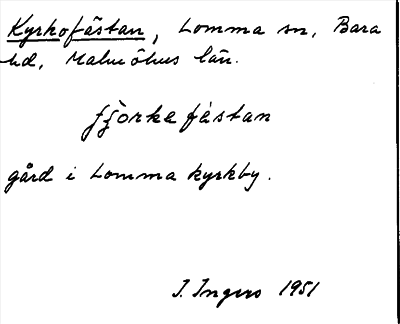 Kyrkofästan, Lomma sn, Bara
hd, Malmöhus län.
fästan
gård i Lomma kyrkby.
I. Ingers 1951